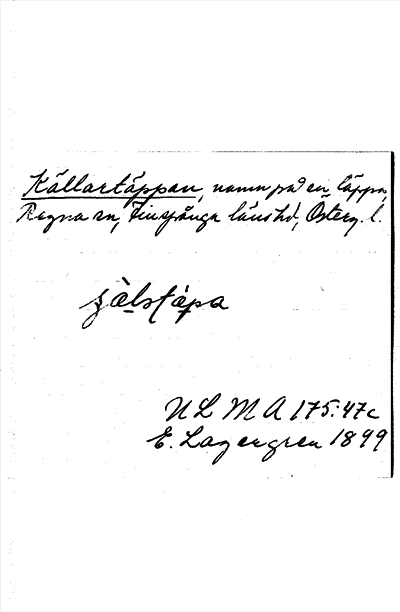 Källartäppan, namn på en täppa,
Regna sn, Finspånga länshd, Österg. l.
U L M A 175:47c
E. Lagergren 1899